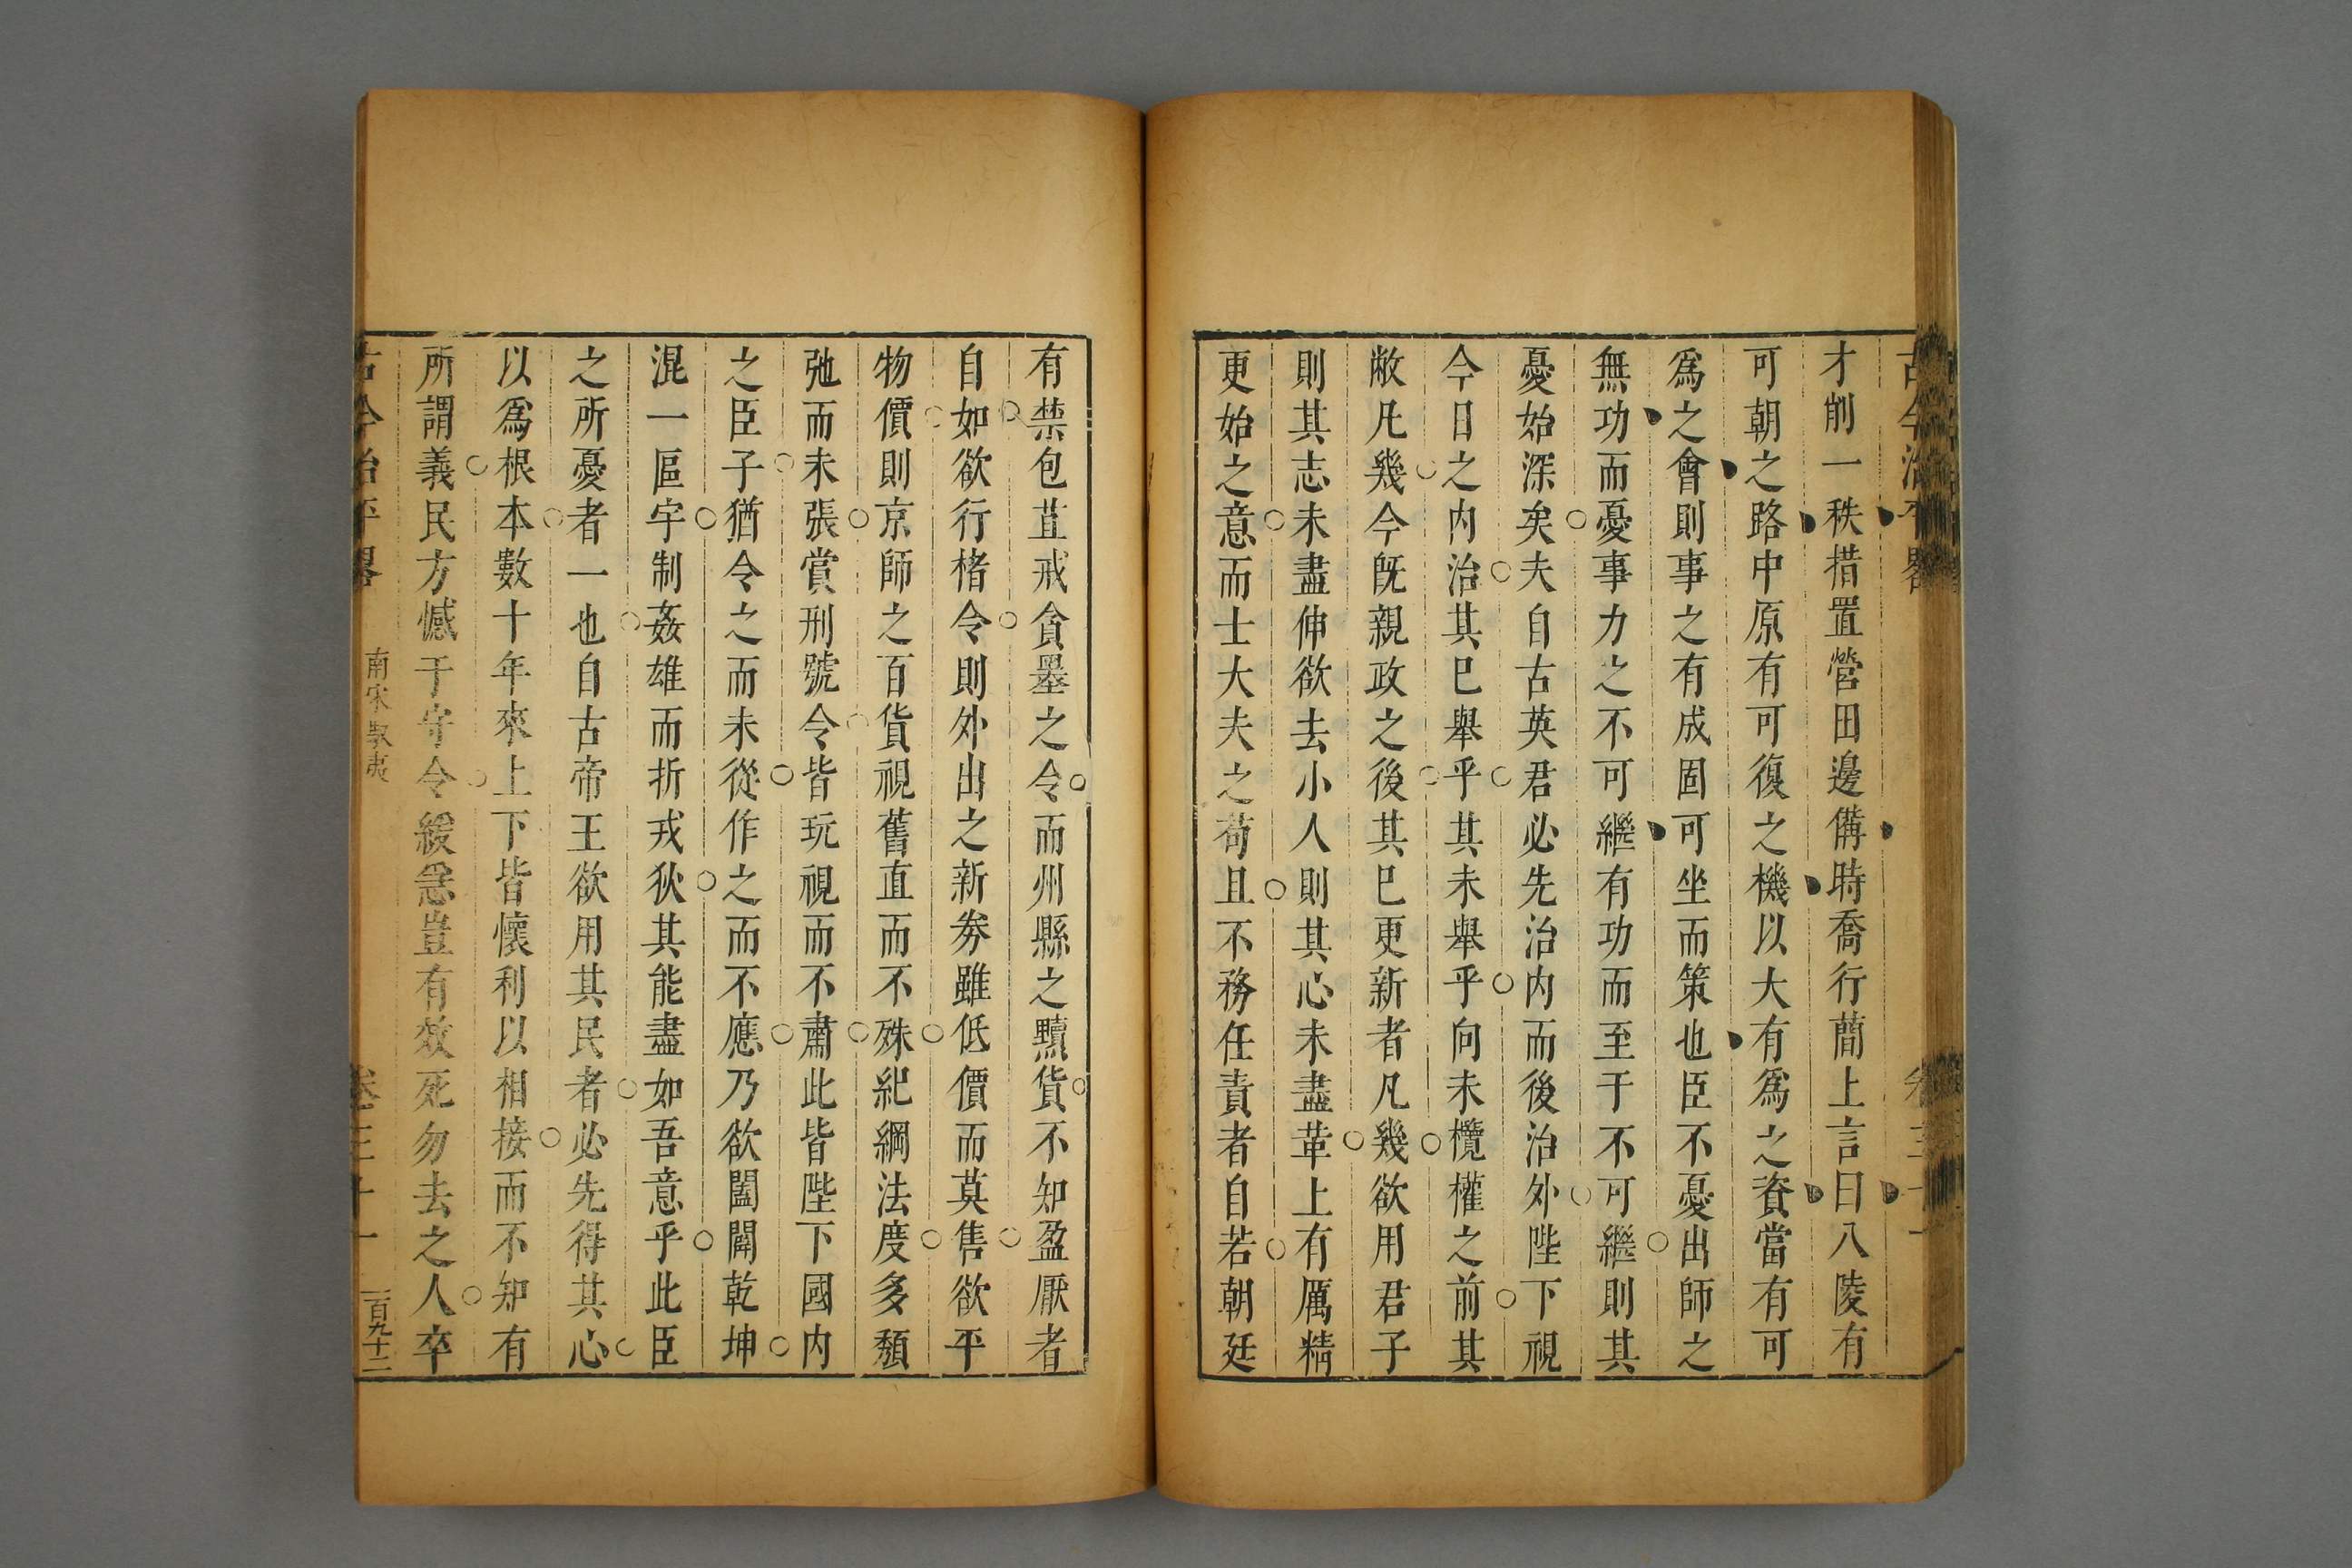 古今治平畧
卷三十一
才削一秩措置營田邊備時喬行簡上言曰八陵有
可朝之路中原有可復之機以大有爲之資當有可
爲之會則事之有成固可坐而策也臣不憂出師之
無功而憂事力之不可繼有功而至于不可繼則其
憂始深矣夫自古英君必先治内而後治外陛下視
今日之内治其已舉乎其未舉乎向未攬權之前其
敝凡幾今既親政之後其已更新者凡幾欲用君子
則其志未盡伸欲去小人則其心未盡革上有厲精
更始之意而士大夫之苟且不務任責者自若朝廷
有禁包苴戒貪墨之令而州縣之黷貨不知盈厭者
自如欲行楮令則外出之新劵雖低價而莫售欲平
物價則京師之百貨視舊直而不殊紀綱法度多頽
弛而未張賞刑號令皆玩視而不肅此皆陛下國内
之臣子猶令之而未從作之而不應乃欲闔闢乾坤
混一區宇制姦雄而折戎狄其能盡如吾意乎此臣
之所憂者一也自古帝王欲用其民者必先得其心
以爲根本數十年來上下皆懷利以相接而不知有
所謂義民方憾于守令緩急豈有效死勿去之人卒
古今治平畧
南宋馭夷
卷三十一
一百九十二